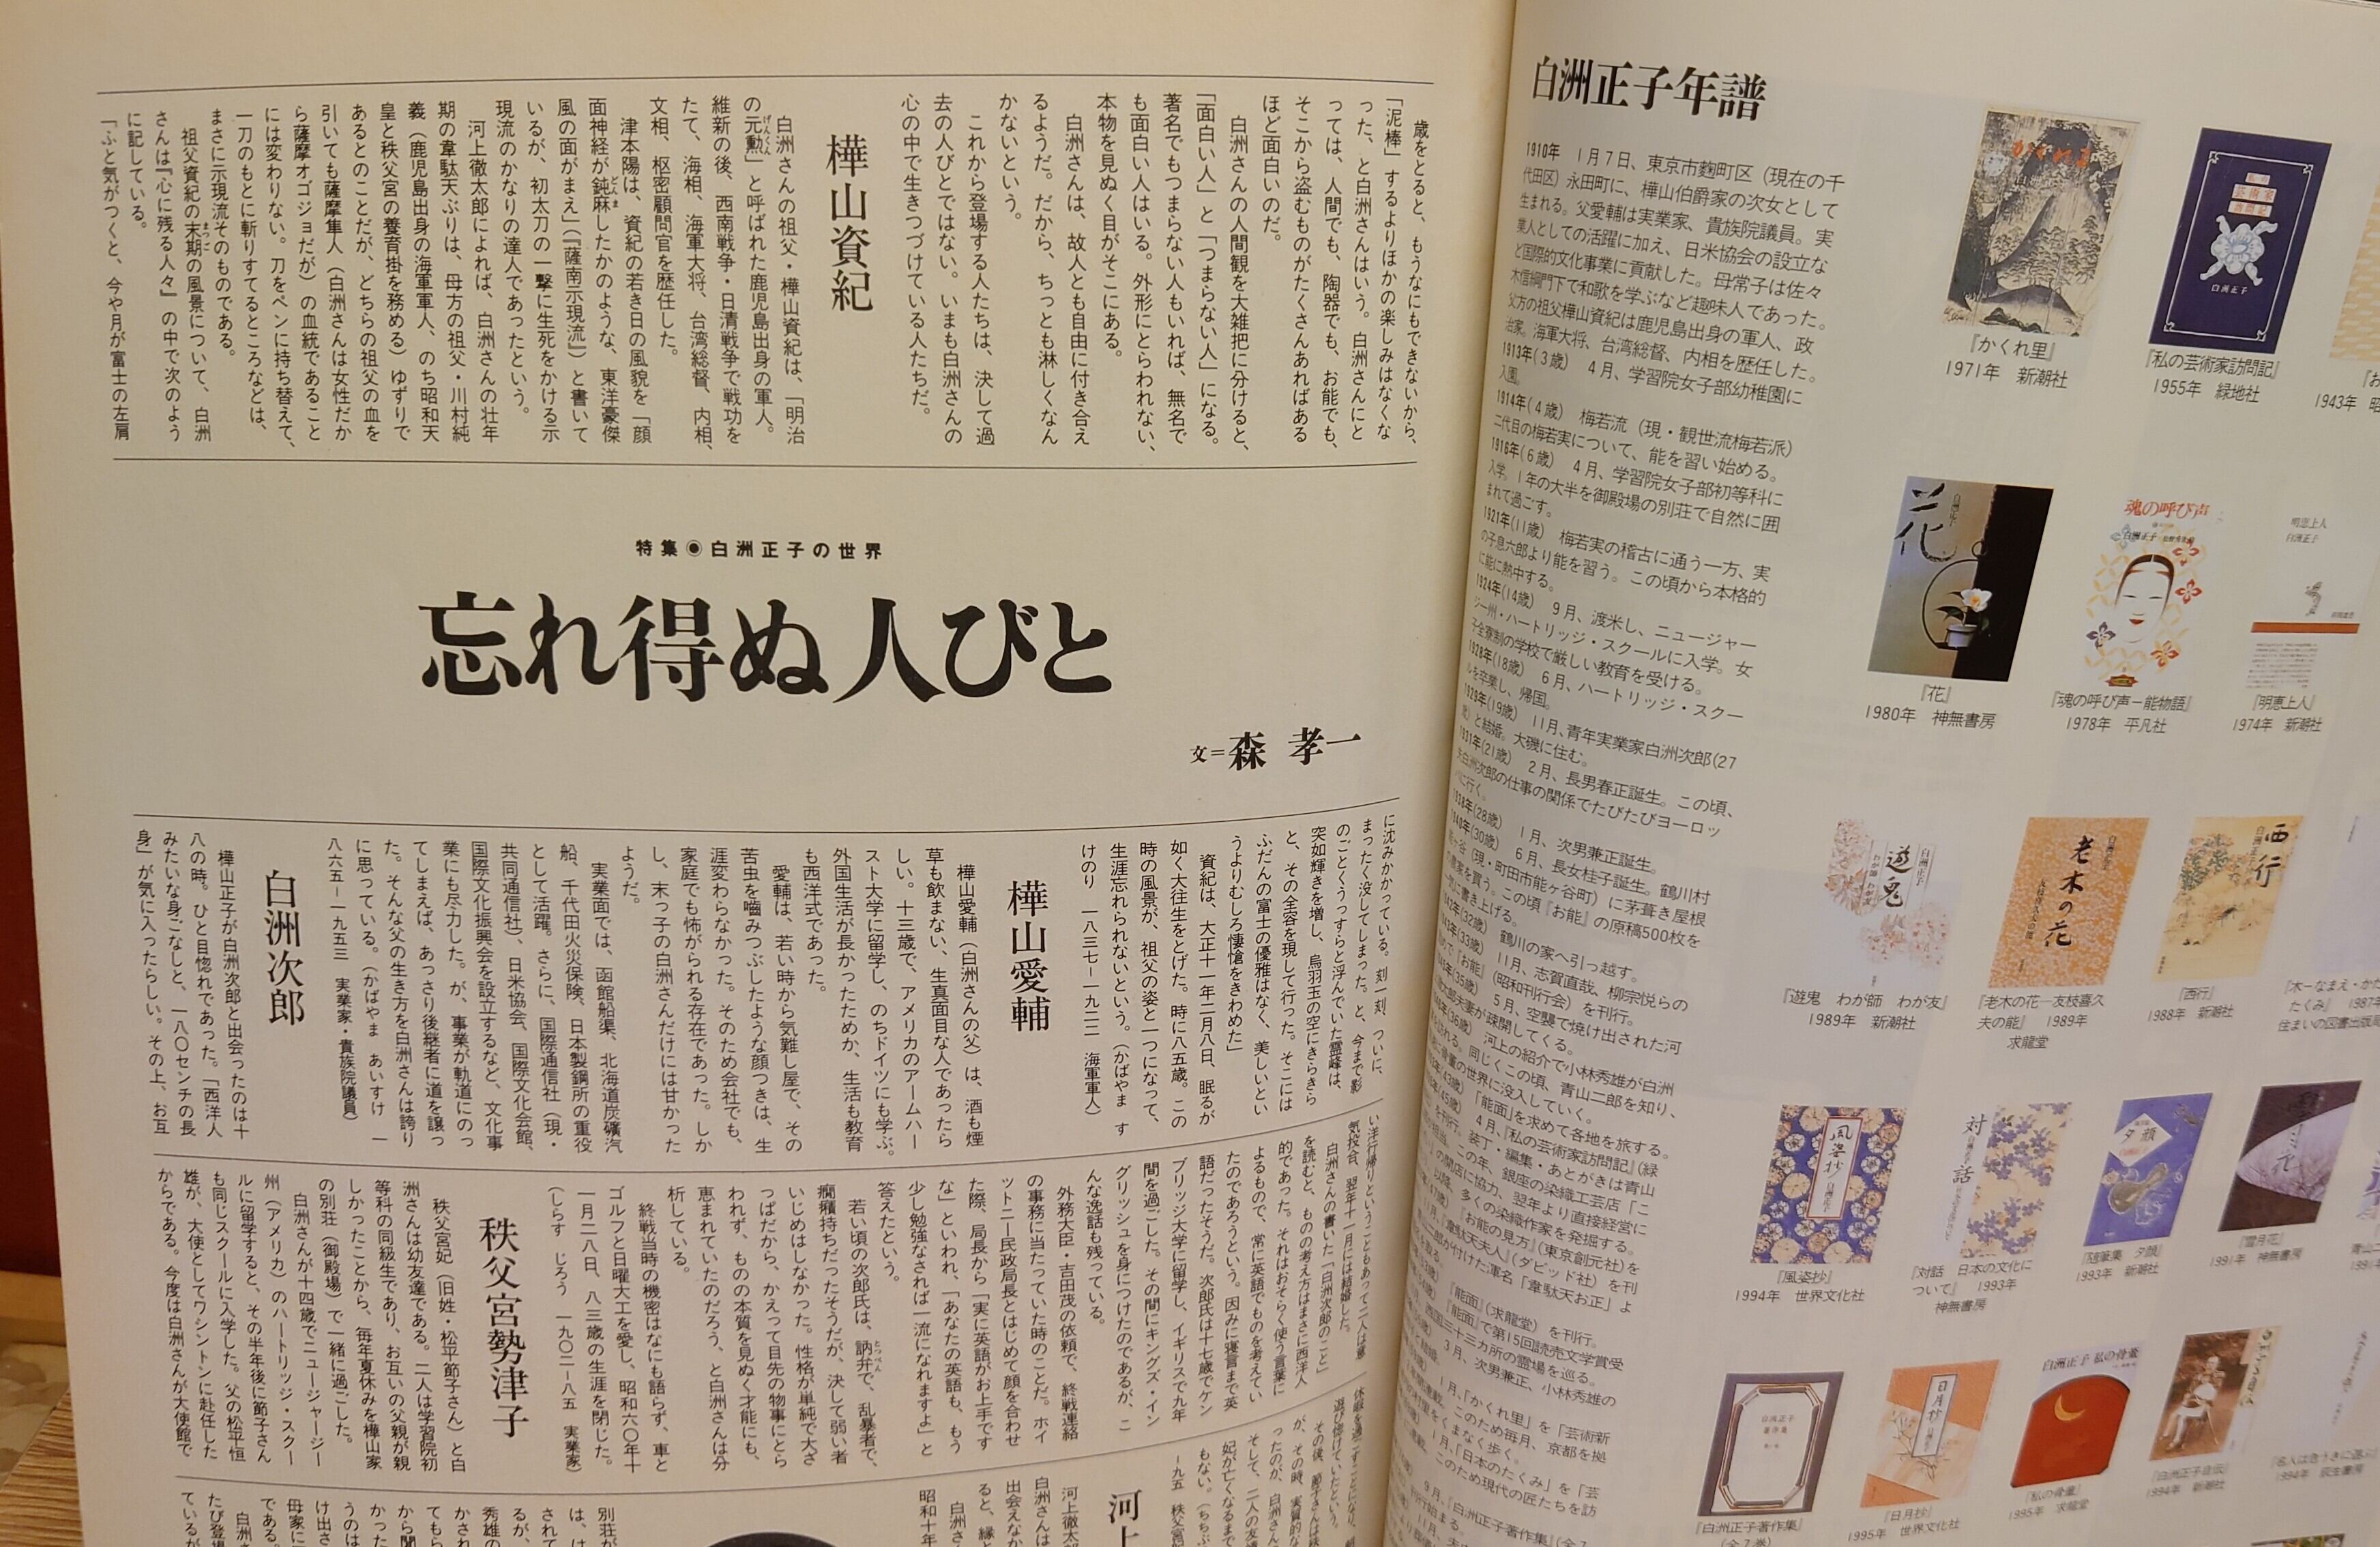 白洲正子年譜
1910年 1月7日、東京市麴町区（現在の千
代田区）永田町に、樺山伯爵家の次女として
生まれる。父愛輔は実業家、貴族院議員。実
業人としての活躍に加え、日米協会の設立な
ど国際的文化事業に貢献した。母常子は佐々
木信綱門下で和歌を学ぶなど趣味人であった。
父方の祖父樺山資紀は鹿児島出身の軍人、政
治家。海軍大将、台湾総督、内相を歴任した。
1913年(3歳) 4月、学習院女子部幼稚園に
入園。
1914年(4歳) 梅若流（現・観世流梅若派）
二代目の梅若実について、能を習い始める。
1916年(6歳) 4月、学習院女子部初等科に
入学。1年の大半を御殿場の別荘で自然に囲
まれて過ごす。
1921年(11歳) 梅若実の稽古に通う一方、実
の子息六郎より能を習う。この頃から本格的
に能に熱中する。
1924年(14歳) 9月、渡米し、ニュージャー
ジー州・ハートリッジ・スクールに入学。女
子全寮制の学校で厳しい教育を受ける。
1928年(18歳) 6月、ハートリッジ・スクー
ルを卒業し、帰国。
1929年(19歳) 11月、青年実業家白洲次郎(27
歳)と結婚。大磯に住む。
1931年(21歳) 2月、長男春正誕生。この頃、
夫白州次郎の仕事の関係でたびたびヨーロッ
パに行く。
1938年(28歳) 1月、次男兼正誕生。
1940年(30歳) 6月、長女桂子誕生。鶴川村
能ヶ谷（現・町田市能ヶ谷町）に茅葺き屋根
の農家を買う。この頃『お能』の原稿500枚を
一気に書き上げる。
(32歳) 鶴川の家へ引っ越す。
(33歳) 11月、志賀直哉、柳宗悦らの
『お能』（昭和刊行会）を刊行。
(35歳) 5月、空襲で焼け出された河
夫妻が疎開してくる。
(36歳) 河上の紹介で小林秀雄が白洲
同じくこの頃、青山二郎を知り、
骨董の世界に没入していく。
(43歳) 「能面」を求めて各地を旅する。
4月、『私の芸術家訪問記』（緑
を刊行。装丁・編集・あとがきは青山
この年、銀座の染織工芸店「こ
の開店に協力、翌年より直接経営に
以降、多くの染織作家を発掘する。
『お能の見方』（東京創元社）を
『韋駄天夫人』（ダビッド社）を刊
が付けた渾名「韋駄天お正」よ
『能面』（求龍堂）を刊行。
『能面』で第15回読売文学賞受
西国三十三カ所の霊場を巡る。
3月、次男兼正、小林秀雄の
1月、「かくれ里」を「芸術新
このため毎月、京都を拠
村里をくまなく歩く。
1月、「日本のたくみ」を「芸
このため現代の匠たちを訪
9月、『白洲正子著作集』（全7
『かくれ里』
1971年 新潮社
『私の芸術家訪問記』
1955年 緑地社
1943年
『花』
1980年 神無書房
『魂の呼び声−能物語』
1978年 平凡社
『明恵上人』
1974年 新潮社
『遊鬼 わが師 わが友』
1989年 新潮社
『老木の花−友枝喜久
夫の能』 1989年
求龍堂
『西行』
1988年 新潮社
『木−なまえ・かた
たくみ』 1987
住まいの図書出版局
『風姿抄』
1994年 世界文化社
『対話 日本の文化に
ついて』 1993年
神無書房
『随筆集 夕顔』
1993年 新潮社
『雪月花』
1991年 神無書房
『白洲正子著作集』
(全7巻)
『日月抄』
1995年 世界文化社
『私の骨董』
1995年 求龍堂
『白洲正子自伝』
1994年 新潮社
歳をとると、もうなにもできないから、
「泥棒」するよりほかの楽しみはなくな
った、と白洲さんはいう。白洲さんにと
っては、人間でも、陶器でも、お能でも、
そこから盗むものがたくさんあればある
ほど面白いのだ。
白洲さんの人間観を大雑把に分けると、
「面白い人」と「つまらない人」になる。
著名でもつまらない人もいれば、無名で
も面白い人はいる。外形にとらわれない、
本物を見ぬく目がそこにある。
白洲さんは、故人とも自由に付き合え
るようだ。だから、ちっとも淋しくなん
かないという。
これから登場する人たちは、決して過
去の人びとではない。いまも白洲さんの
心の中で生きつづけている人たちだ。
樺山資紀
白洲さんの祖父・樺山資紀は、「明治
の元勲」と呼ばれた鹿児島出身の軍人。
維新の後、西南戦争・日清戦争で戦功を
たて、海相、海軍大将、台湾総督、内相、
文相、枢密顧問官を歴任した。
津本陽は、資紀の若き日の風貌を「顔
面神経が鈍麻したかのような、東洋豪傑
風の面がまえ」（『薩南示現流』）と書いて
いるが、初太刀の一撃に生死をかける示
現流のかなりの達人であったという。
河上徹太郎によれば、白洲さんの壮年
期の韋駄天ぶりは、母方の祖父・川村純
義（鹿児島出身の海軍軍人、のち昭和天
皇と秩父宮の養育掛を務める）ゆずりで
あるとのことだが、どちらの祖父の血を
引いても薩摩隼人（白洲さんは女性だか
ら薩摩オゴジョだが）の血統であること
には変わりない。刀をペンに持ち替えて、
一刀のもとに斬りすてるところなどは、
まさに示現流そのものである。
祖父資紀の末期の風景について、白洲
さんは『心に残る人々』の中で次のよう
に記している。
「ふと気がつくと、今や月が富士の左肩
特集◉白洲正子の世界
忘れ得ぬ人びと
文＝森 孝一
に沈みかかっている。刻一刻、ついに、
まったく没してしまった。と、今まで影
のごとくうっすらと浮んでいた霊峰は、
突如輝きを増し、烏羽玉の空にきらきら
と、その全容を現して行った。そこには
ふだんの富士の優雅はなく、美しいとい
うよりむしろ悽愴をきわめた」
資紀は、大正十一年二月八日、眠るが
如く大往生をとげた。時に八五歳。この
時の風景が、祖父の姿と一つになって、
生涯忘れられないという。（かばやま す
けのり 一八三七－一九二二 海軍軍人）
樺山愛輔
樺山愛輔（白洲さんの父）は、酒も煙
草も飲まない、生真面目な人であったら
しい。十三歳で、アメリカのアームハー
スト大学に留学し、のちドイツにも学ぶ。
外国生活が長かったためか、生活も教育
も西洋式であった。
愛輔は、若い時から気難し屋で、その
苦虫を嚙みつぶしたような顔つきは、生
涯変わらなかった。そのため会社でも、
家庭でも怖がられる存在であった。しか
し、末っ子の白洲さんだけには甘かった
ようだ。
実業面では、函館船渠、北海道炭礦汽
船、千代田火災保険、日本製鋼所の重役
として活躍。さらに、国際通信社（現・
共同通信社）、日米協会、国際文化会館、
国際文化振興会を設立するなど、文化事
業にも尽力した。が、事業が軌道にのっ
てしまえば、あっさり後継者に道を譲っ
た。そんな父の生き方を白洲さんは誇り
に思っている。（かばやま あいすけ 一
八六五－一九五三 実業家・貴族院議員）
白洲次郎
樺山正子が白洲次郎と出会ったのは十
八の時。ひと目惚れであった。「西洋人
みたいな身ごなしと、一八〇センチの長
身」が気に入ったらしい。その上、お互
い洋行帰りということもあって二人は意
気投合、翌年十一月には結婚した。
白洲さんの書いた「白洲次郎のこと」
を読むと、ものの考え方はまさに西洋人
的であった。それはおそらく使う言葉に
よるもので、常に英語でものを考えてい
たのであろうという。因みに寝言まで英
語だったそうだ。次郎氏は十七歳でケン
ブリッジ大学に留学し、イギリスで九年
間を過ごした。その間にキングズ・イン
グリッシュを身につけたのであるが、こ
んな逸話も残っている。
外務大臣・吉田茂の依頼で、終戦連絡
の事務に当たっていた時のことだ。ホイ
ットニー民政局長とはじめて顔を合わせ
た際、局長から「実に英語がお上手です
な」といわれ、「あなたの英語も、もう
少し勉強なされば一流になれますよ」と
答えたという。
若い頃の次郎氏は、訥弁で、乱暴者で、
癇癪持ちだったそうだが、決して弱い者
いじめはしなかった。性格が単純で大ざ
っぱだから、かえって目先の物事にとら
われず、ものの本質を見ぬく才能にも、
恵まれていたのだろう、と白洲さんは分
析している。
終戦当時の機密はなにも語らず、車と
ゴルフと日曜大工を愛し、昭和六〇年十
一月二八日、八三歳の生涯を閉じた。
（しらす じろう 一九〇二－八五 実業家）
秩父宮勢津子
秩父宮妃（旧姓・松平節子さん）と白
洲さんは幼友達である。二人は学習院初
等科の同級生であり、お互いの父親が親
しかったことから、毎年夏休みを樺山家
の別荘（御殿場）で一緒に過ごした。
白洲さんが十四歳でニュージャージー
州（アメリカ）のハートリッジ・スクー
ルに留学すると、その半年後に節子さん
も同じスクールに入学した。父の松平恒
雄が、大使としてワシントンに赴任した
からである。今度は白洲さんが大使館で